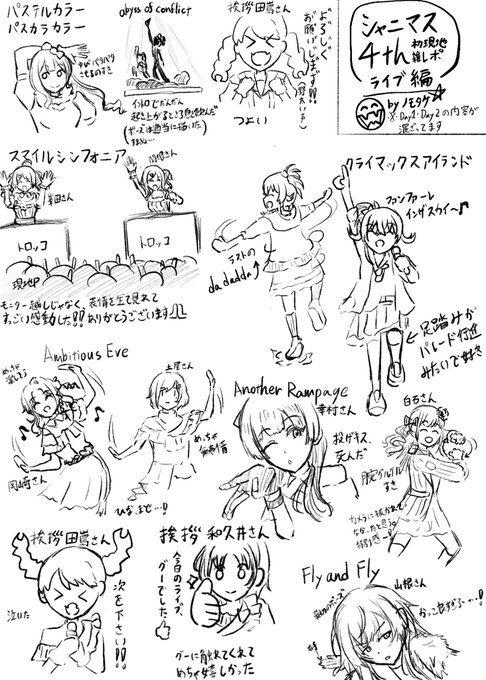 シャニマス
4th 初現地
雑レポ
ライブ編
by ノモヲケ
※Day1・Day2の内容が
混ざってます
パステルカラー
パスカラカラー
abyss of conflict
イントロでだんだん
起き上がるところ息を飲んだ
(ポーズは適当に描いた)
挨拶 田嶌さん
よろしく
お願いします!!!
つよい
スマイルシンフォニア
峯田さん
関根さん
トロッコ
トロッコ
現地P
モニター越しじゃなく、表情を生で見れて
すっごい感動した!! ありがとうございます
クライマックスアイランド
ファンファーレ
インザスカイ〜♪
ラストの
da dadda
足踏みが
パレード行進
みたいで好き
Ambitious Eve
めっちゃ
楽しそう
岡咲さん
土屋さん
めっちゃ
無表情
ひな、まま…!
Another Rampage
幸村さん
投げキス、
死んだ
白石さん
腕グルグル
すき
カメラに抜かれて
なかったと思うので
特別感…!
挨拶 田嶌さん
次を下さい!!
泣いた
挨拶 和久井さん
今日のライブ、
グーでした
グーに触れてくれて
めちゃ嬉しかった
Fly and Fly
山根さん
かっこ良すぎる…!